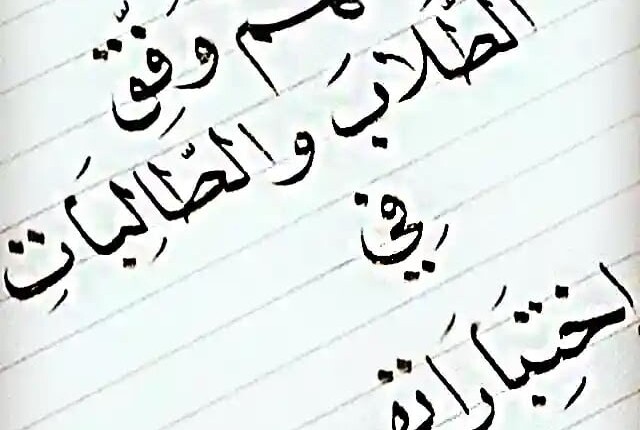 ـهم وفِّق
الطّلابَ والطّالِبَاتِ
في
اختِبَارَاته